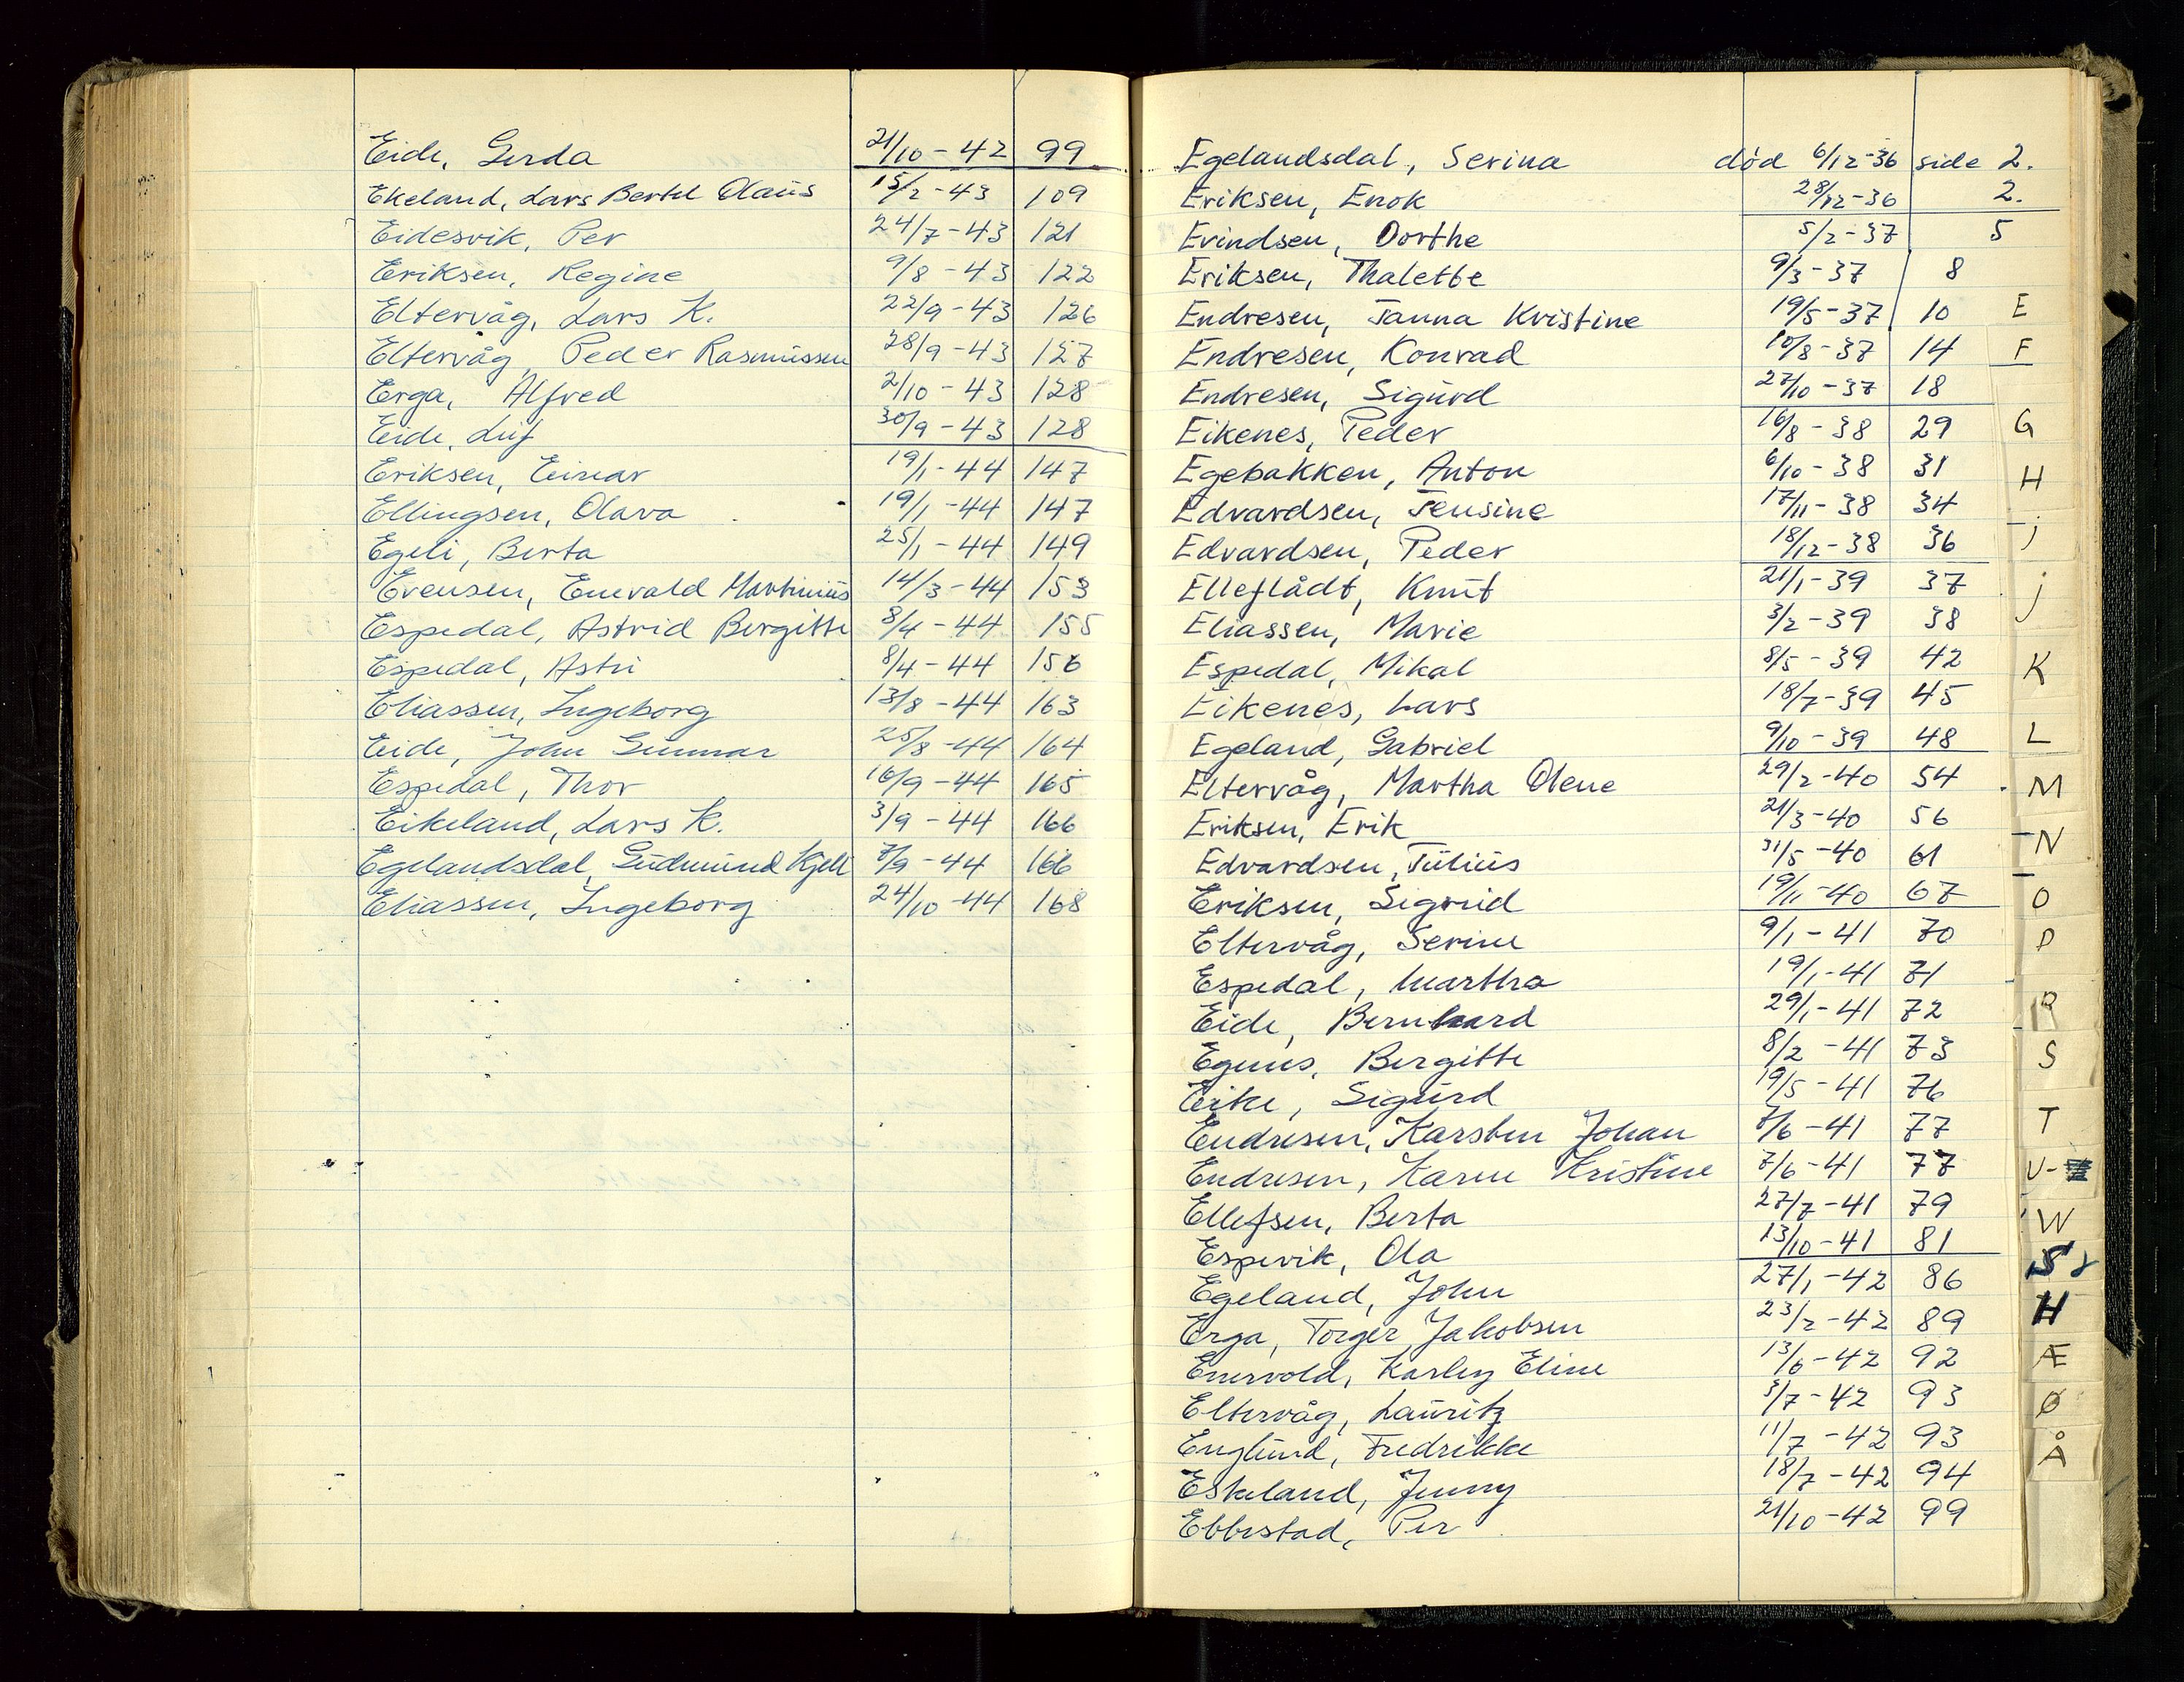 Eide, Gerda 21/10-42 99
Ekeland, Lars Bertel Olaus 15/2-43 109
Eidesvik, Per 24/7-43 121
Eriksen, Regine 9/8-43 122
Eltervåg, Lars K. 22/9-43 126
Eltervåg, Peder Rasmussen 28/9-43 127
Erga, Alfred 2/10-43 128
Eide, Leif 30/9-43 128
Eriksen, Einar 19/1-44 147
Ellingsen, Olava 19/1-44 147
Egeli, Berta 25/1-44 149
Evensen, Enevald Martinius 14/3-44 153
Espedal, Astrid Bergitte 8/4-44 155
Espedal, Astri 8/4-44 156
Eliassen, Ingeborg 13/8-44 163
Eide, John Gunnar 25/8-44 164
Espedal, Thor 16/9-44 165
Eikeland, Lars K. 3/9-44 166
Egelandsdal, Gudmund Kjell 7/9-44 166
Eliassen, Ingeborg 24/10-44 168
Egelandsdal, Serina død 6/12-36 side 2.
Eriksen, Enok 28/12-36 2.
Evindsen, Dorthe 5/2-37 5
Eriksen, Thalette 9/3-37 8
Endresen, Janna Kristine 19/5-37 10
Endresen, Konrad 10/8-37 14
Endresen, Sigurd 27/10-37 18
Eikenes, Peder 16/8-38 29
Egebakken, Anton 6/10-38 31
Edvardsen, Jensine 17/11-38 34
Edvardsen, Peder 18/12-38 36
Elleflådt, Knut 21/1-39 37
Eliassen, Marie 3/2-39 38
Espedal, Mikal 8/5-39 42
Eikenes, Lars 18/7-39 45
Egeland, Gabriel 9/10-39 48
Eltervåg, Martha Olene 29/2-40 54
Eriksen, Erik 21/3-40 56
Edvardsen, Julius 31/5-40 61
Eriksen, Sigrid 19/11-40 67
Eltervåg, Serine 9/1-41 70
Espedal, Martha 19/1-41 71
Eide, Bernhard 29/1-41 72
Egenes, Bergitte 8/2-41 73
Eike, Sigurd 19/5-41 76
Endresen, Karsten Johan 7/6-41 77
Endresen, Karen Kristine 7/6-41 77
Ellefsen, Berta 27/7-41 79
Espevik, Ola 13/10-41 81
Egeland, John 27/1-42 86
Erga, Torger Jakobsen 23/2-42 89
Enervold, Karley Eline 13/6-42 92
Eltervåg, Lauritz 3/7-42 93
Englund, Fredrikke 11/7-42 93
Eskeland, Jenny 18/7-42 94
Ebbestad, Per 21/10-42 99
E
F
G
H
i
j
K
L
M
N
O
P
R
S
T
U-
W
H
Æ
Ø
Å